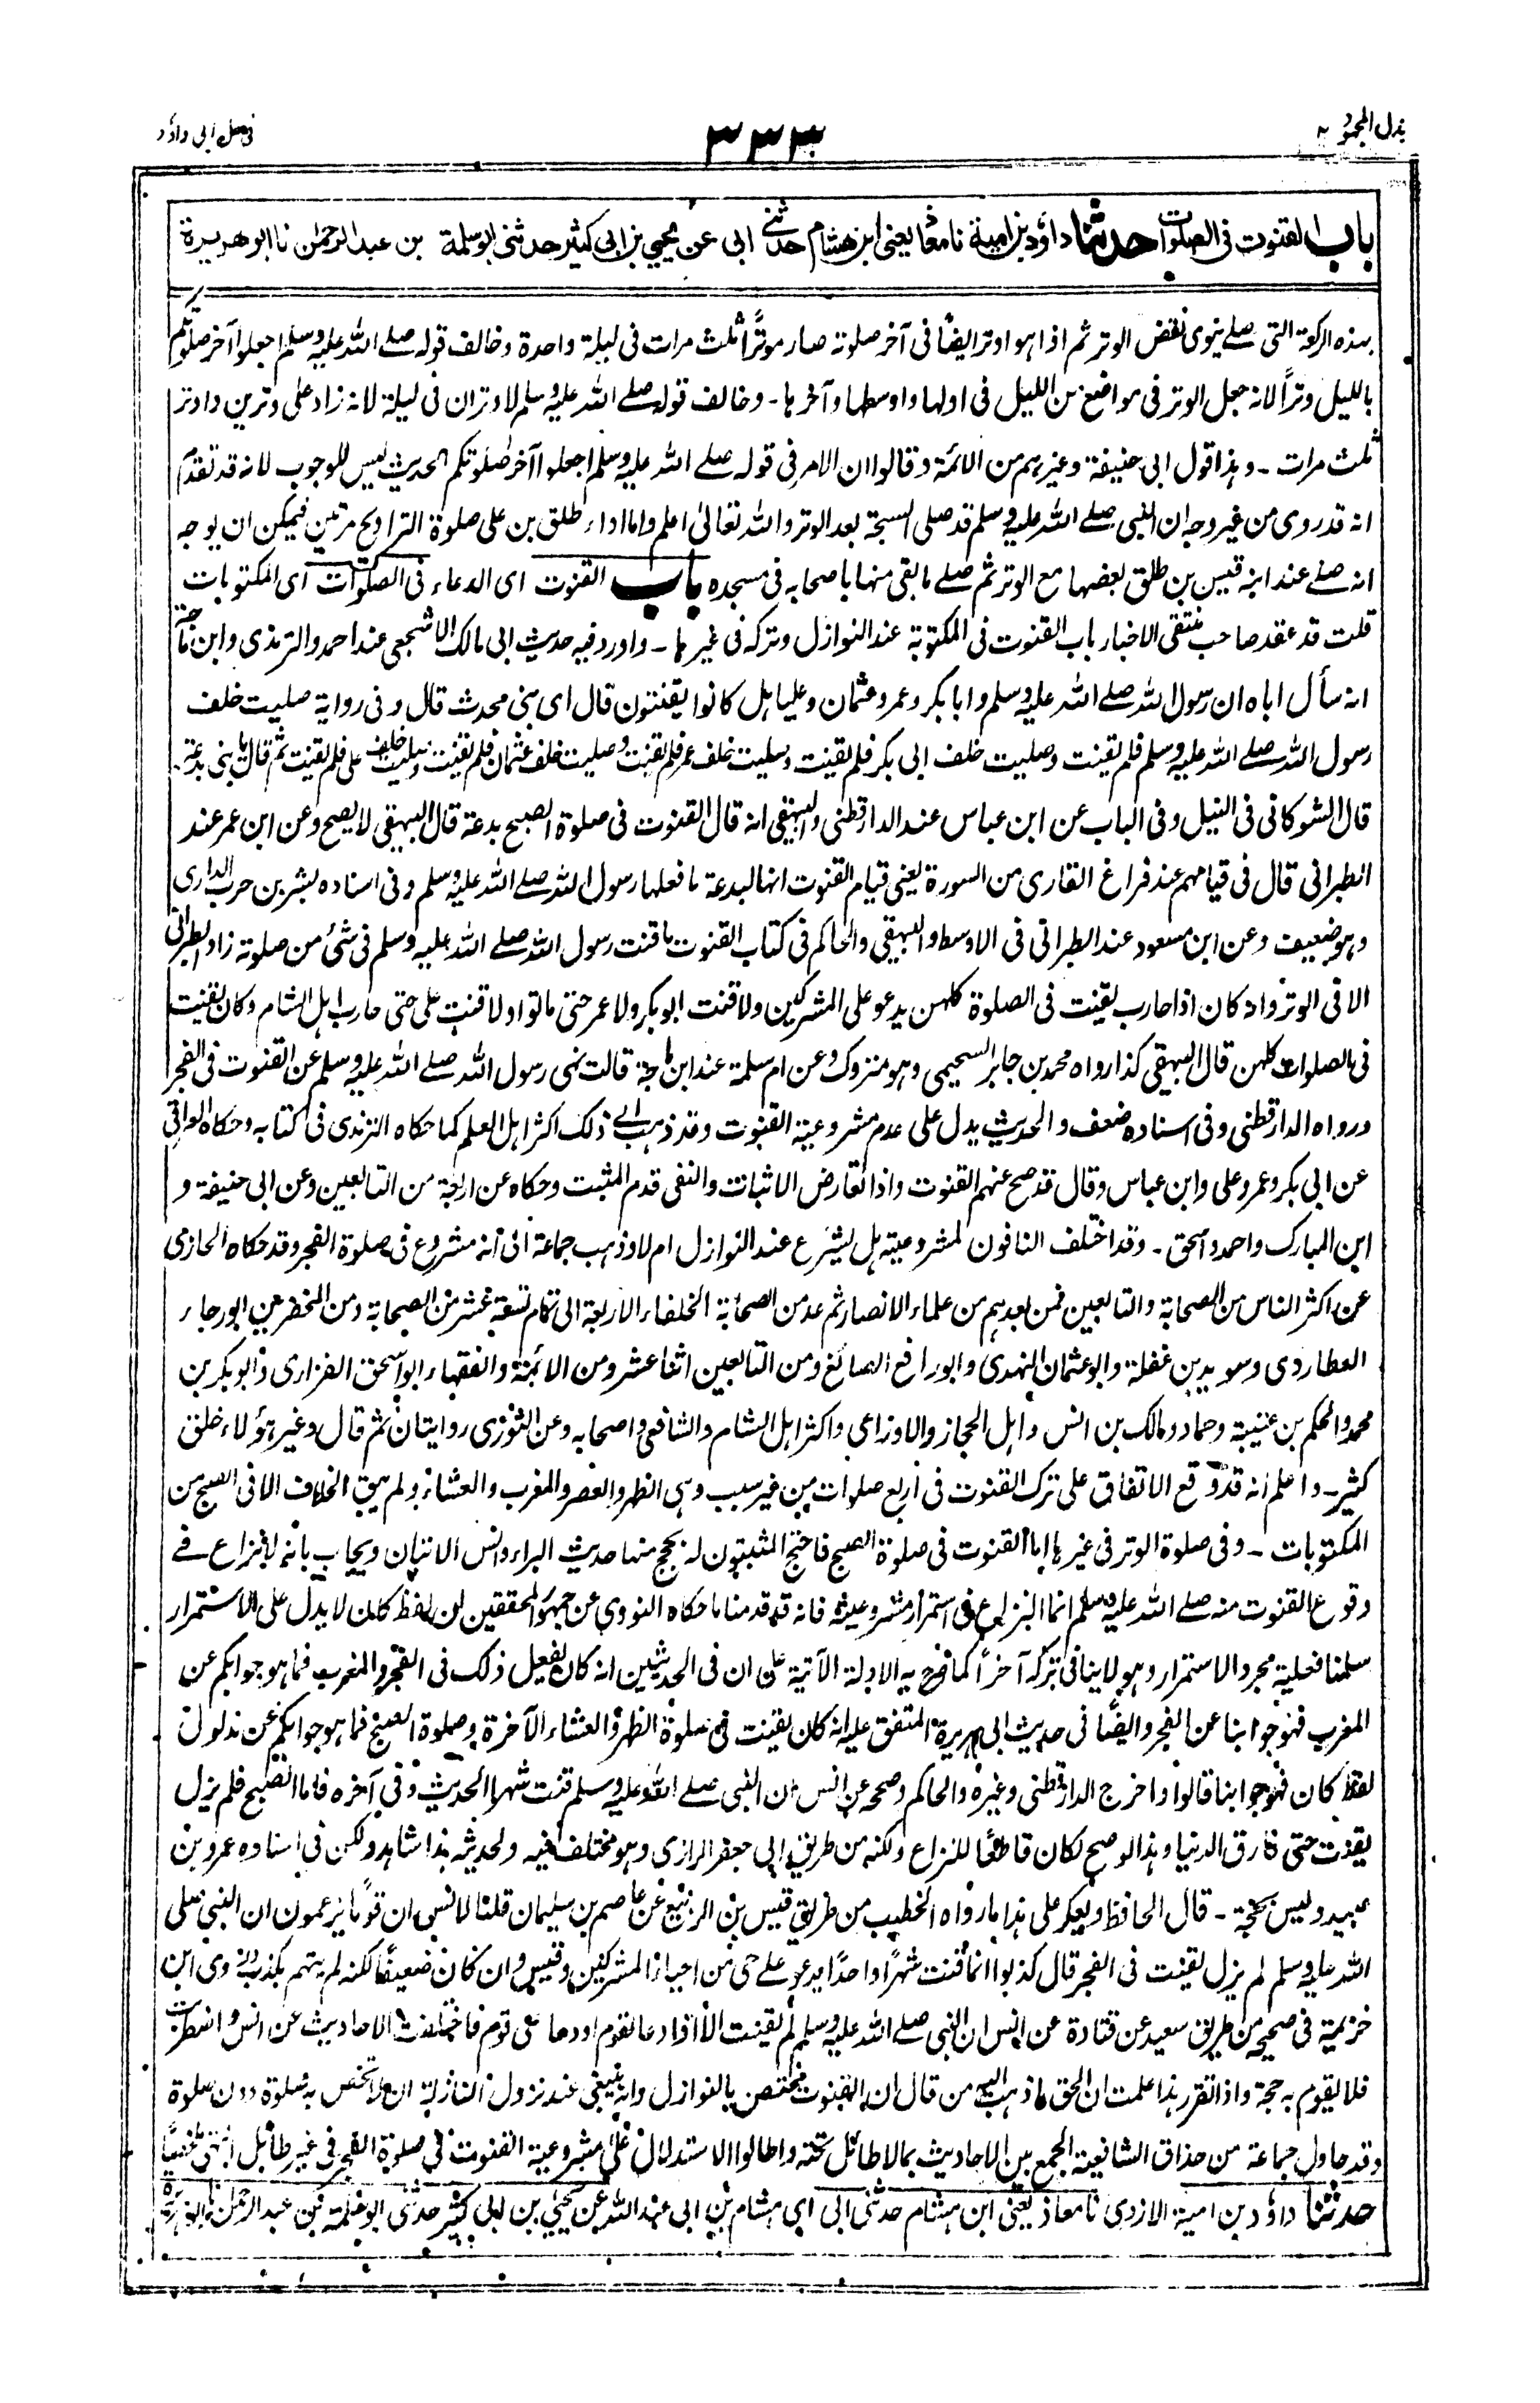 بذل المجهود ٢
٣٣٣
فى حل ابى داؤد
باب القنوت فى الصلوات حدثنا داؤد بن امية نا معاذ يعنى ابن هشام حدثنى ابى عن يحيى بن ابى كثير حدثنى ابو سلمة بن عبد الرحمٰن نا ابو هريرة
بهذه الركعة التى صلے ينوى نقض الوتر ثم اذا هو اوتر ايضًا فى آخر صلوته صار موترًا ثلث مرات فى ليلة واحدة وخالف قوله صلے الله عليه وسلم اجعلوا آخر صلوتكم
بالليل وترًا لانه جعل الوتر فى مواضع من الليل فى اولها واوسطها وآخرها ـ وخالف قوله صلے الله عليه وسلم لا وتران فى ليلة لانه زاد على وترين واوتر
ثلث مرات ـ وهذا قول ابى حنيفة وغيرهم من الائمة وقالوا ان الامر فى قوله صلے الله عليه وسلم اجعلوا آخر صلوتكم الحديث ليس للوجوب لانه قد تقدم
انه قد روى من غير وجه ان النبى صلے الله عليه وسلم قد صلى السبحة بعد الوتر والله تعالىٰ اعلم واما اداء طلق بن على صلوة التراويح مرتين فيمكن ان يوجه
انه صلے عند ابنه قيس بن طلق بعضها مع الوتر ثم صلے ما بقى منها باصحابه فى مسجده باب القنوت اى الدعاء فى الصلوات اى المكتوبات
قلت قد عقد صاحب منتقى الاخبار باب القنوت فى المكتوبة عند النوازل وتركه فى غيرها ـ واورد فيه حديث ابى مالك الاشجعى عند احمد والترمذى وابن ماجة
انه سأل اباه ان رسول الله صلے الله عليه وسلم وابا بكر وعمر وعثمان وعليا هل كانوا يقنتون قال اى بنى محدث قال وفى رواية صليت خلف
رسول الله صلے الله عليه وسلم فلم يقنت وصليت خلف ابى بكر فلم يقنت وصليت خلف عمر فلم يقنت وصليت خلف عثمان فلم يقنت وصليت خلف على فلم يقنت ثم قال يا بنى بدعة
قال الشوكانى فى النيل وفى الباب عن ابن عباس عند الدارقطنى والبيهقى انه قال القنوت فى صلوة الصبح بدعة قال البيهقى لا يصح وعن ابن عمر عند
الطبرانى قال فى قيامهم عند فراغ القارى من السورة يعنى قيام القنوت انها لبدعة ما فعلها رسول الله صلے الله عليه وسلم وفى اسناده بشر بن حرب الدارى
وهو ضعيف وعن ابن مسعود عند الطبرانى فى الاوسط والبيهقى والحاكم فى كتاب القنوت ما قنت رسول الله صلے الله عليه وسلم فى شئ من صلوته زاد الطبرانى
الا فى الوتر وانه كان اذا حارب يقنت فى الصلوة كلهن يدعو على المشركين ولا قنت ابو بكر ولا عمر حتى ماتوا ولا قنت على حتى حارب اهل الشام وكان يقنت
فى الصلوات كلهن قال البيهقى كذا رواه محمد بن جابر السحيمى وهو متروك وعن ام سلمة عند ابن ماجة قالت نهى رسول الله صلے الله عليه وسلم عن القنوت فى الفجر
ورواه الدارقطنى وفى اسناده ضعف والحديث يدل على عدم مشروعية القنوت وقد ذهب الے ذلك اكثر اهل العلم كما حكاه الترمذى فى كتابه وحكاه العراقى
عن ابى بكر وعمر وعلى وابن عباس وقال قد صح عنهم القنوت واذا تعارض الاثبات والنفى قدم المثبت وحكاه عن اربعة من التابعين وعن ابى حنيفة و
ابن المبارك واحمد واسحق ـ وقد اختلف النافون لمشروعيته هل يشرع عند النوازل ام لا وذهب جماعة الى انه مشروع فى صلوة الفجر وقد حكاه الحازمى
عن اكثر الناس من الصحابة والتابعين فمن بعدهم من علماء الانصار ثم عد من الصحابة الخلفاء الاربعة الى تمام تسعة عشر من الصحابة ومن المخضرمين ابو رجاء
العطاردى وسويد بن غفلة وابو عثمان النهدى وابو رافع الصائغ ومن التابعين اثنا عشر ومن الائمة والفقهاء ابو اسحق الفزارى وابو بكر بن
محمد والحكم بن عتيبة وحماد ومالك بن انس واهل الحجاز والاوزاعى واكثر اهل الشام والشافعى واصحابه وعن الثورى روايتان ثم قال وغير هؤلاء خلق
كثير ـ واعلم انه قد وقع الاتفاق على ترك القنوت فى اربع صلوات من غير سبب وهى الظهر والعصر والمغرب والعشاء ولم يبق الخلاف الا فى الصبح من
المكتوبات ـ وفى صلوة الوتر فى غيرها اما القنوت فى صلوة الصبح فاحتج المثبتون له بحجج منها حديث البراء وانس الاتيان ويجاب بانه لا نزاع فے
وقوع القنوت منه صلے الله عليه وسلم انما النزاع فى استمرار مشروعيته فانه قد قدمنا ما حكاه النووى عن جمهور المحققين ان لفظ كان لا يدل على الاستمرار
سلمنا فعلية مجرد الاستمرار وهو لا ينافى تركه آخرًا كما صرح به الادلة الآتية على ان فى الحديثين انه كان يفعل ذلك فى الفجر والمغرب فما هو جوابكم عن
المغرب فهو جوابنا عن الفجر وايضًا فى حديث ابى هريرة المتفق عليه انه كان يقنت فى صلوة الظهر والعشاء الآخرة وصلوة الصبح فما هو جوابكم عن مدلول
لفظ كان فهو جوابنا قالوا واخرج الدارقطنى وغيره والحاكم وصححه عن انس ان النبى صلے الله عليه وسلم قنت شهرا الحديث وفى آخره فاما الصبح فلم يزل
يقنت حتى فارق الدنيا وهذا لو صح لكان قاطعًا للنزاع ولكنه من طريق ابى جعفر الرازى وهو مختلف فيه ولحديثه هذا شاهد ولكن فى اسناده عمرو بن
عبيد وليس بحجة ـ قال الحافظ ويعكر على هذا ما رواه الخطيب من طريق قيس بن الربيع عن عاصم بن سليمان قلنا لانس ان قومًا يزعمون ان النبى صلى
الله عليه وسلم لم يزل يقنت فى الفجر قال كذبوا انما قنت شهرًا واحدًا يدعو علے حى من احياء المشركين وقيس وان كان ضعيفًا لكنه لم يتهم بكذب وروى ابن
خزيمة فى صحيحه من طريق سعيد عن قتادة عن انس ان النبى صلے الله عليه وسلم لم يقنت الا اذا دعا لقوم او دعا على قوم فاختلفت الاحاديث عن انس واضطربت
فلا يقوم به حجة واذا تقرر هذا علمت ان الحق ما ذهب اليه من قال ان القنوت مختص بالنوازل وانه ينبغى عند نزول النازلة ان لا تخص به صلوة دون صلوة
وقد حاول جماعة من حذاق الشافعية الجمع بين الاحاديث بما لا طائل تحته واطالوا الاستدلال على مشروعية القنوت فى صلوة الفجر فى غير طائل انتهى ملخصًا
حدثنا داؤد بن امية الازدى نا معاذ يعنى ابن هشام حدثنى ابى اى هشام بن ابى عبد الله عن يحيى بن ابى كثير حدثنى ابو سلمة بن عبد الرحمٰن نا ابو هريرة